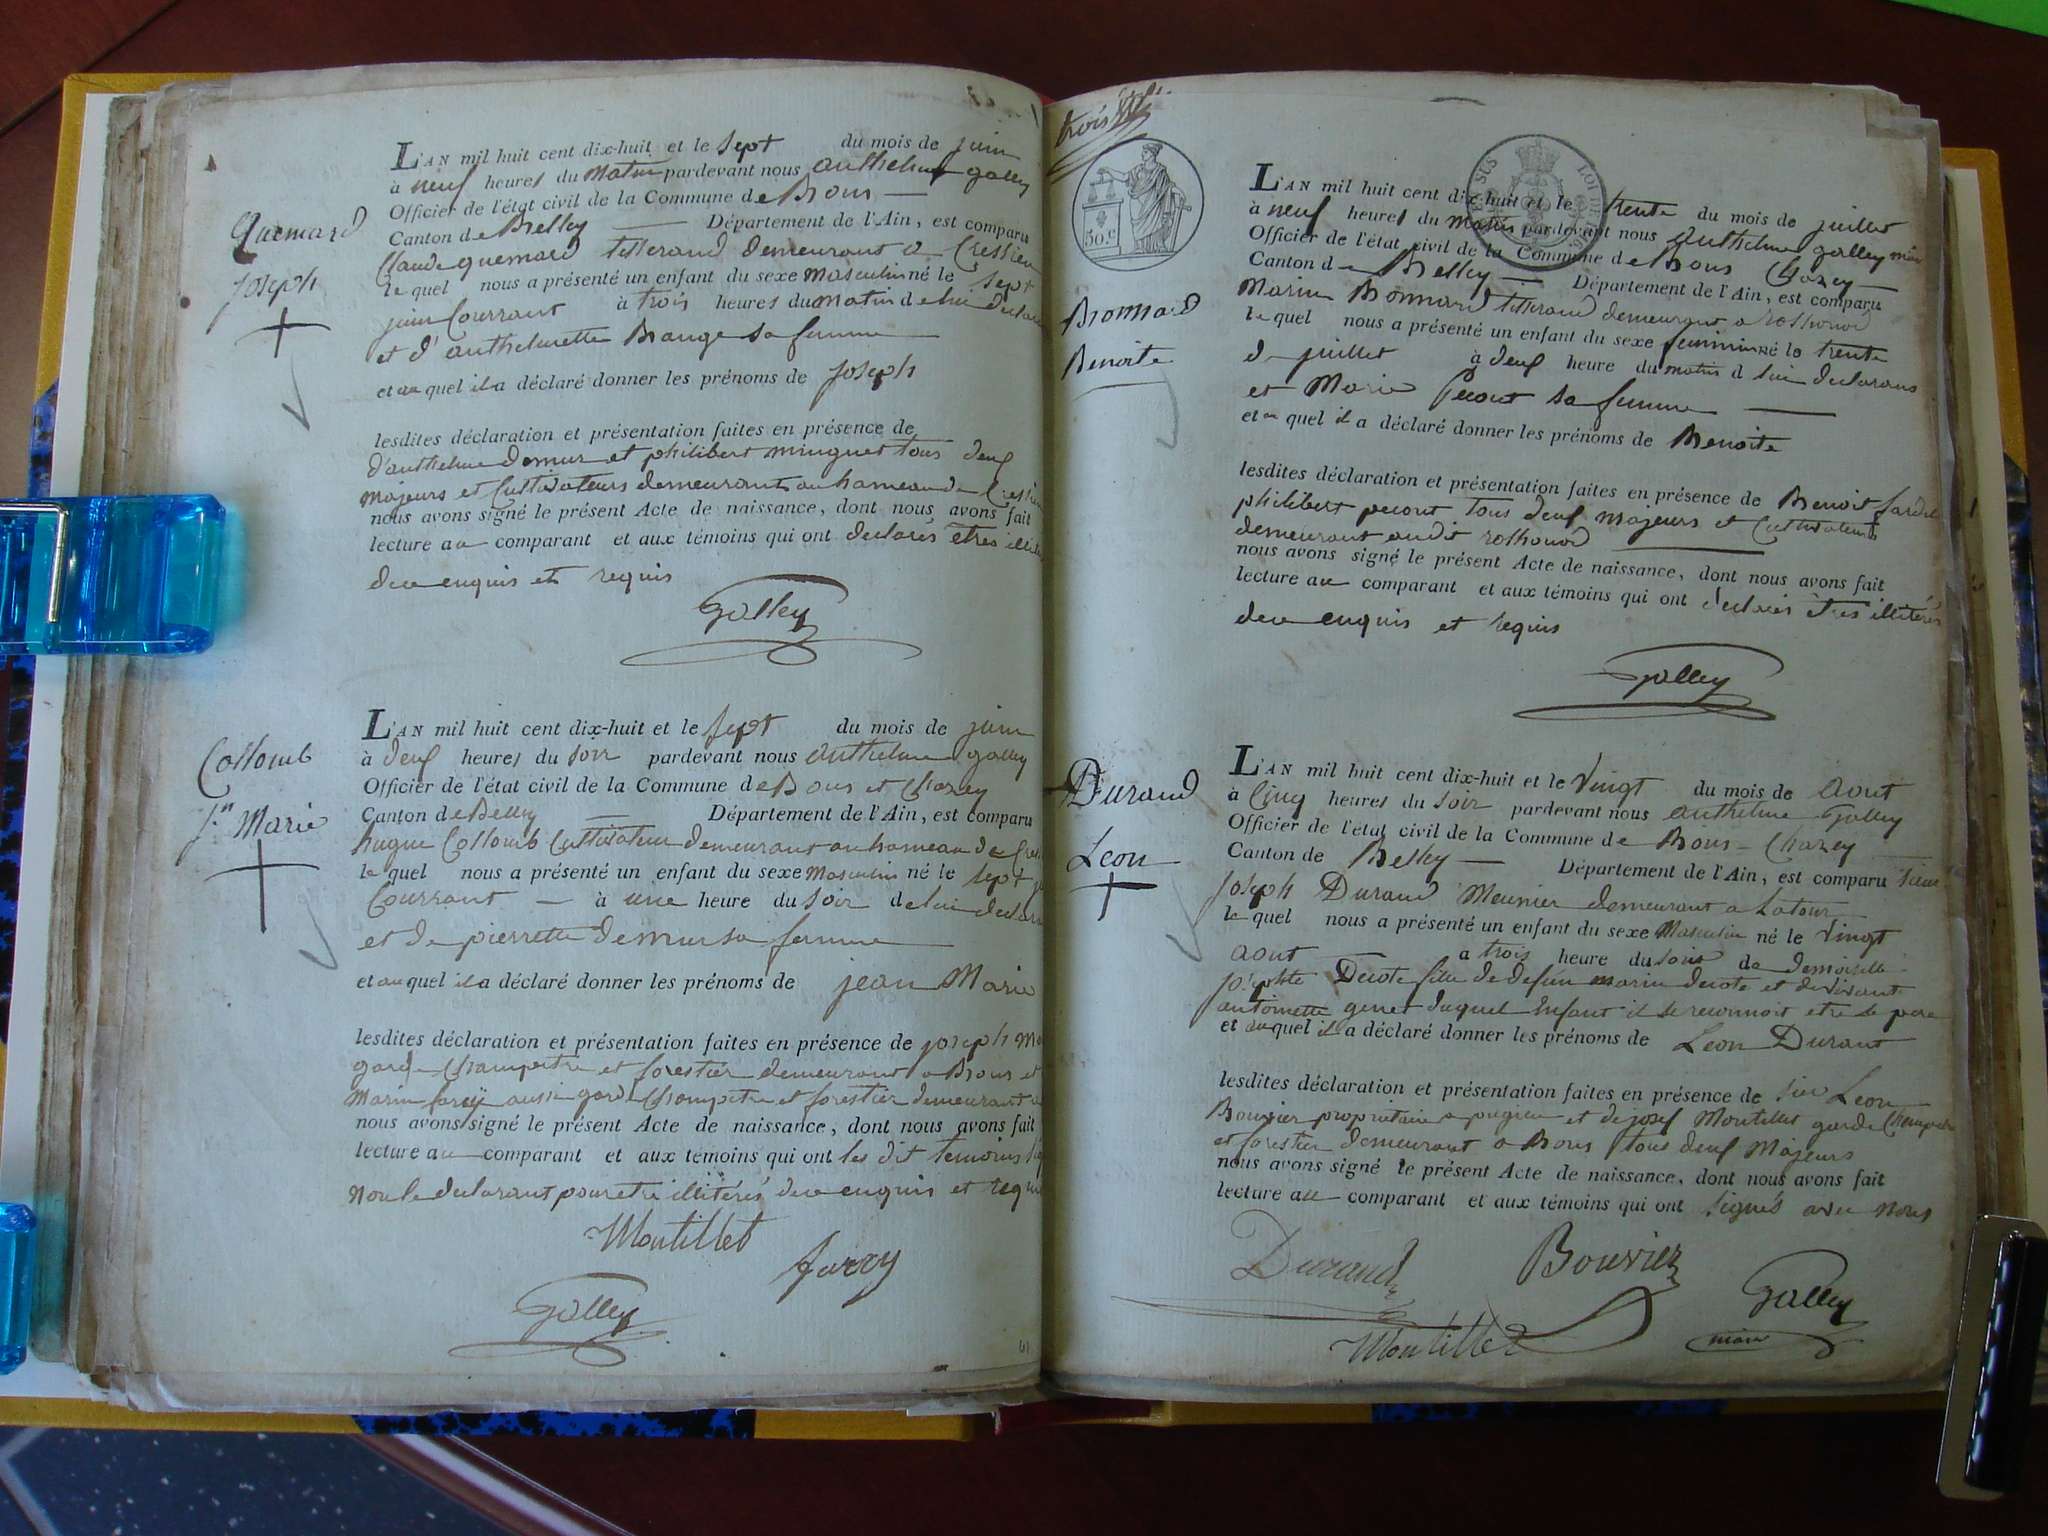 L'AN mil huit cent dix-huit et le sept du mois de juin
à neuf heures du matin pardevant nous anthelme galley
Officier de l'état civil de la Commune de Bons
Canton de Belley Département de l'Ain, est comparu
Claude quemard tisserand demeurant a Cressieu
le quel nous a présenté un enfant du sexe masculin né le sept
juin Courrant à trois heures du matin de lui
et d'anthelmette Brange sa femme
et au quel il a déclaré donner les prénoms de joseph
Quemard
joseph
lesdites déclaration et présentation faites en présence de
d'anthelme demur et philibert minguet tous deux
majeurs et Cultivateurs demeurants au hameau de
nous avons signé le présent Acte de naissance, dont nous avons fait
lecture au comparant et aux témoins qui ont declarés etres
de ce enquis et requis
Galley
L'AN mil huit cent dix-huit et le sept du mois de juin
à deux heures du soir pardevant nous anthelme galley
Officier de l'état civil de la Commune de Bons et Chazey
Canton de Belley Département de l'Ain, est comparu
hugue Collomb Cultivateur demeurant au hameau de
le quel nous a présenté un enfant du sexe masculin né le sept
Courrant à une heure du soir de lui
et de pierrette demur sa femme
et au quel il a déclaré donner les prénoms de jean Marie
Collomb
Jn Marie
lesdites déclaration et présentation faites en présence de joseph
garde Champetre et forestier demeurant a Bons et
Marin aussi garde Champetre et forestier demeurant
nous avons signé le présent Acte de naissance, dont nous avons fait
lecture au comparant et aux témoins qui ont les dit temoins
non le declarant pour etre illitérés de ce enquis et
Montillet
Galley
trois
50.c
L'AN mil huit cent dix-huit et le trente du mois de juillet
à neuf heures du matin pardevant nous anthelme galley
Officier de l'état civil de la Commune de Bons Chazey
Canton de Belley Département de l'Ain, est comparu
Marin Bonnard tisserand demeurant a
le quel nous a présenté un enfant du sexe feminin né le trente
de juillet à deux heure du matin d lui declarans
et Marie Pecout sa femme
et au quel il a déclaré donner les prénoms de Benoite
Bonnard
Benoite
lesdites déclaration et présentation faites en présence de Benoit
philibert pecout tous deux majeurs et Cultivateurs
demeurant audit
nous avons signé le présent Acte de naissance, dont nous avons fait
lecture au comparant et aux témoins qui ont declarés etres illitérés
de ce enquis et requis
Galley
L'AN mil huit cent dix-huit et le Vingt du mois de Aout
à Cinq heures du soir pardevant nous anthelme Galley
Officier de l'état civil de la Commune de Bons - Chazey
Canton de Belley Département de l'Ain, est comparu sieur
joseph Durand Meunier demeurant a Latour
le quel nous a présenté un enfant du sexe Masculin né le Vingt
aout à trois heure du de demoiselle
Decote fille de defun marin decote et de vivant
antoinette genet duquel Enfant il se reconnoit etre le pere
et au quel il a déclaré donner les prénoms de Leon Durant
Durand
Leon
lesdites déclaration et présentation faites en présence de sieur Leon
Bouvier propriétaire a pugieu et de josef Montillet garde Champetre
et forestier demeurant a Bons tous deux Majeurs
nous avons signé le présent Acte de naissance, dont nous avons fait
lecture au comparant et aux témoins qui ont signés avec nous
Durand Bouvier
Galley
Montillet maire